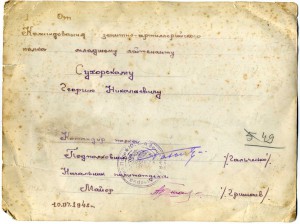 От
Командования зенитно-артиллерийского
полка младшему лейтенанту
Сухорскому
Георгию Николаевичу
Командир полка
Подполковник
49
Начальник
Майор
10.07.1948г.